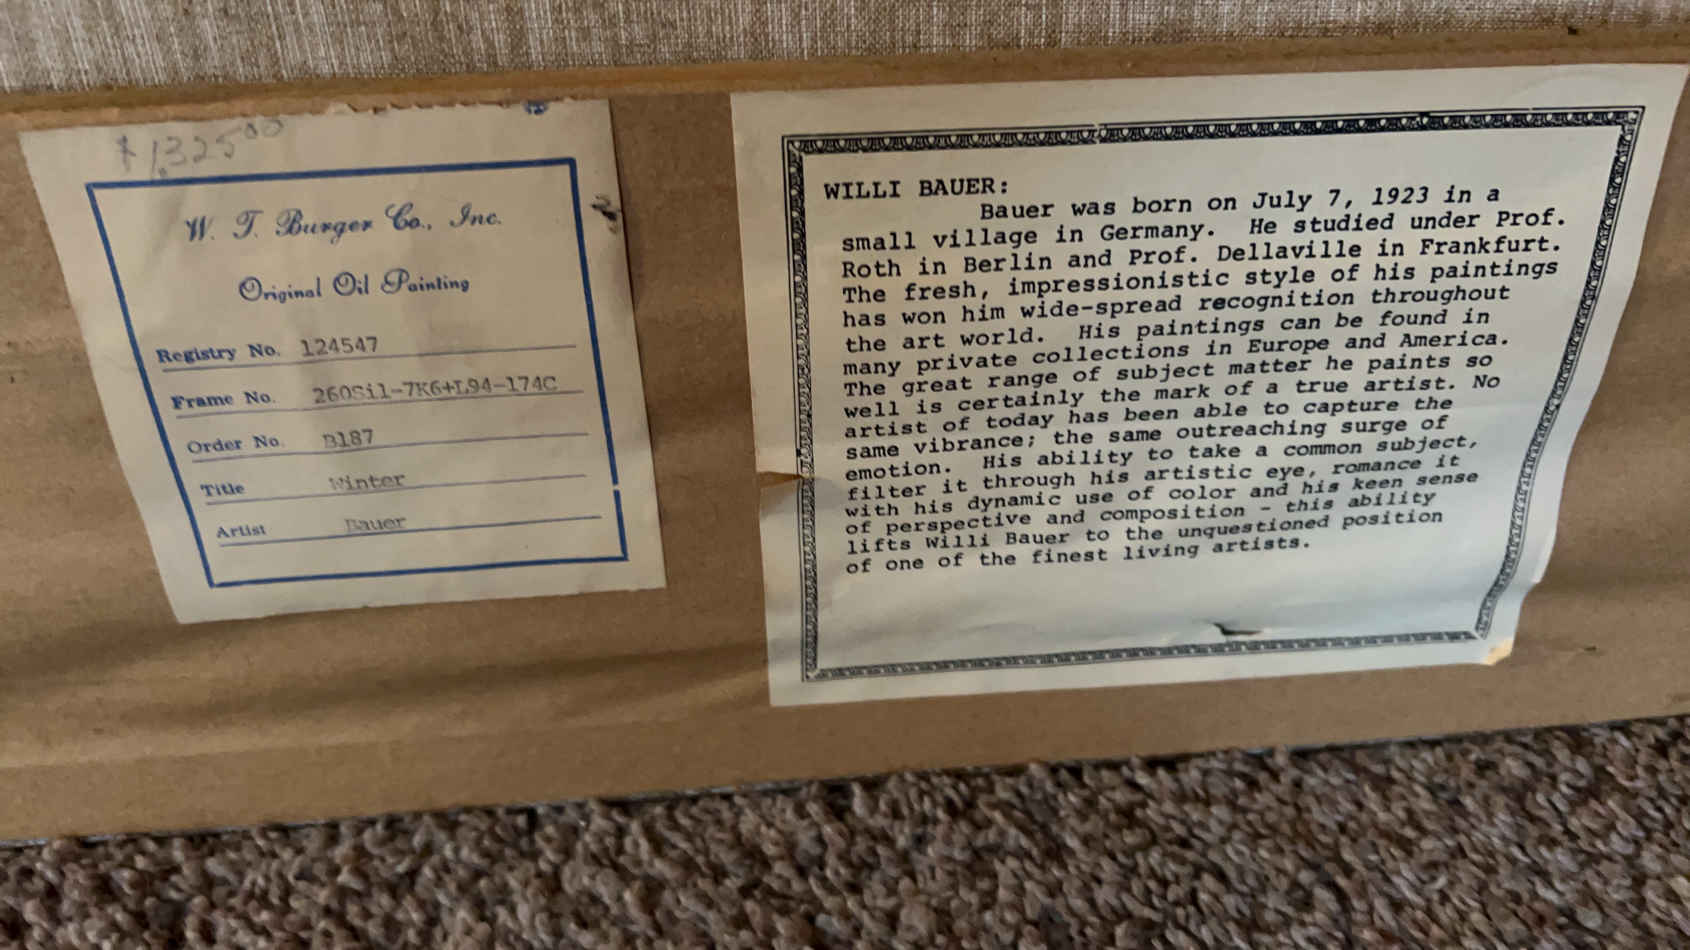 $1,325.00
W. T. Burger Co., Inc.
Original Oil Painting
Registry No. 124547
Frame No. 260Sil-7K6+L94-174C
Order No. B187
Title Winter
Artist Bauer
WILLI BAUER:
Bauer was born on July 7, 1923 in a
small village in Germany. He studied under Prof.
Roth in Berlin and Prof. Dellaville in Frankfurt.
The fresh, impressionistic style of his paintings
has won him wide-spread recognition throughout
the art world. His paintings can be found in
many private collections in Europe and America.
The great range of subject matter he paints so
well is certainly the mark of a true artist. No
artist of today has been able to capture the
same vibrance; the same outreaching surge of
emotion. His ability to take a common subject,
filter it through his artistic eye, romance it
with his dynamic use of color and his keen sense
of perspective and composition - this ability
lifts Willi Bauer to the unquestioned position
of one of the finest living artists.